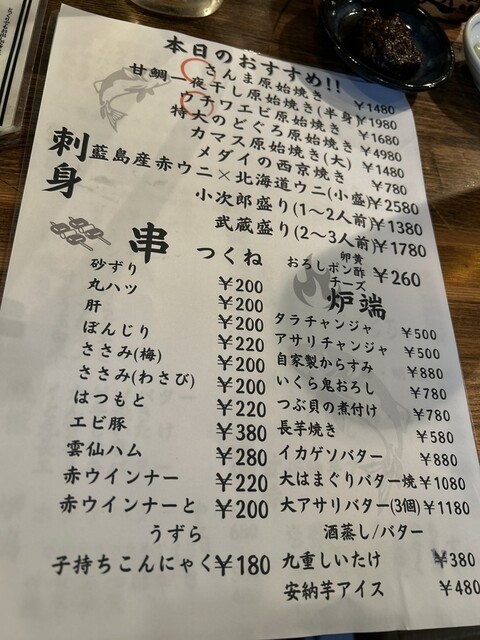 本日のおすすめ!!
さんま原始焼き ¥1480
甘鯛一夜干し原始焼き(半身) ¥1980
ウチワエビ原始焼き ¥1680
特大のどぐろ原始焼き ¥4980
カマス原始焼き(大) ¥1480
メダイの西京焼き ¥780
刺身
藍島産赤ウニ×北海道ウニ(小盛) ¥2580
小次郎盛り(1〜2人前) ¥1380
武蔵盛り(2〜3人前) ¥1780
串
つくね
卵黄
おろしポン酢 ¥260
チーズ
砂ずり ¥200
丸ハツ ¥200
肝 ¥200
ぼんじり ¥220
ささみ(梅) ¥200
ささみ(わさび) ¥200
はつもと ¥220
エビ豚 ¥380
雲仙ハム ¥280
赤ウインナー ¥220
赤ウインナーと ¥200
うずら
子持ちこんにゃく ¥180
炉端
タラチャンジャ ¥500
アサリチャンジャ ¥500
自家製からすみ ¥880
いくら鬼おろし ¥780
つぶ貝の煮付け ¥780
長芋焼き ¥580
イカゲソバター ¥880
大はまぐりバター焼 ¥1080
大アサリバター(3個) ¥1180
酒蒸し/バター
九重しいたけ ¥380
安納芋アイス ¥480